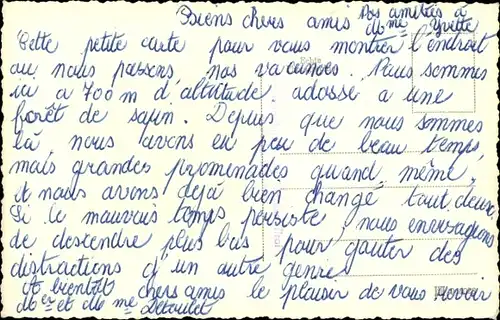 Biens chers amis Nos amitiés à
Mme Yvette
Cette petite carte pour vous montrer l'endroit
ou nous passons nos vacances. Nous sommes
ici a 700 m d'altitude adossé a une
forêt de sapin. Depuis que nous sommes
là nous avons eu peu de beau temps,
mais grandes promenades quand même,
et nous avons déjà bien changé tout deux.
Si le mauvais temps persiste, nous envisageons
de descendre plus bas pour gouter des
distractions d'un autre genre.
A bientôt chers amis le plaisir de vous revoir
Mer et Mme